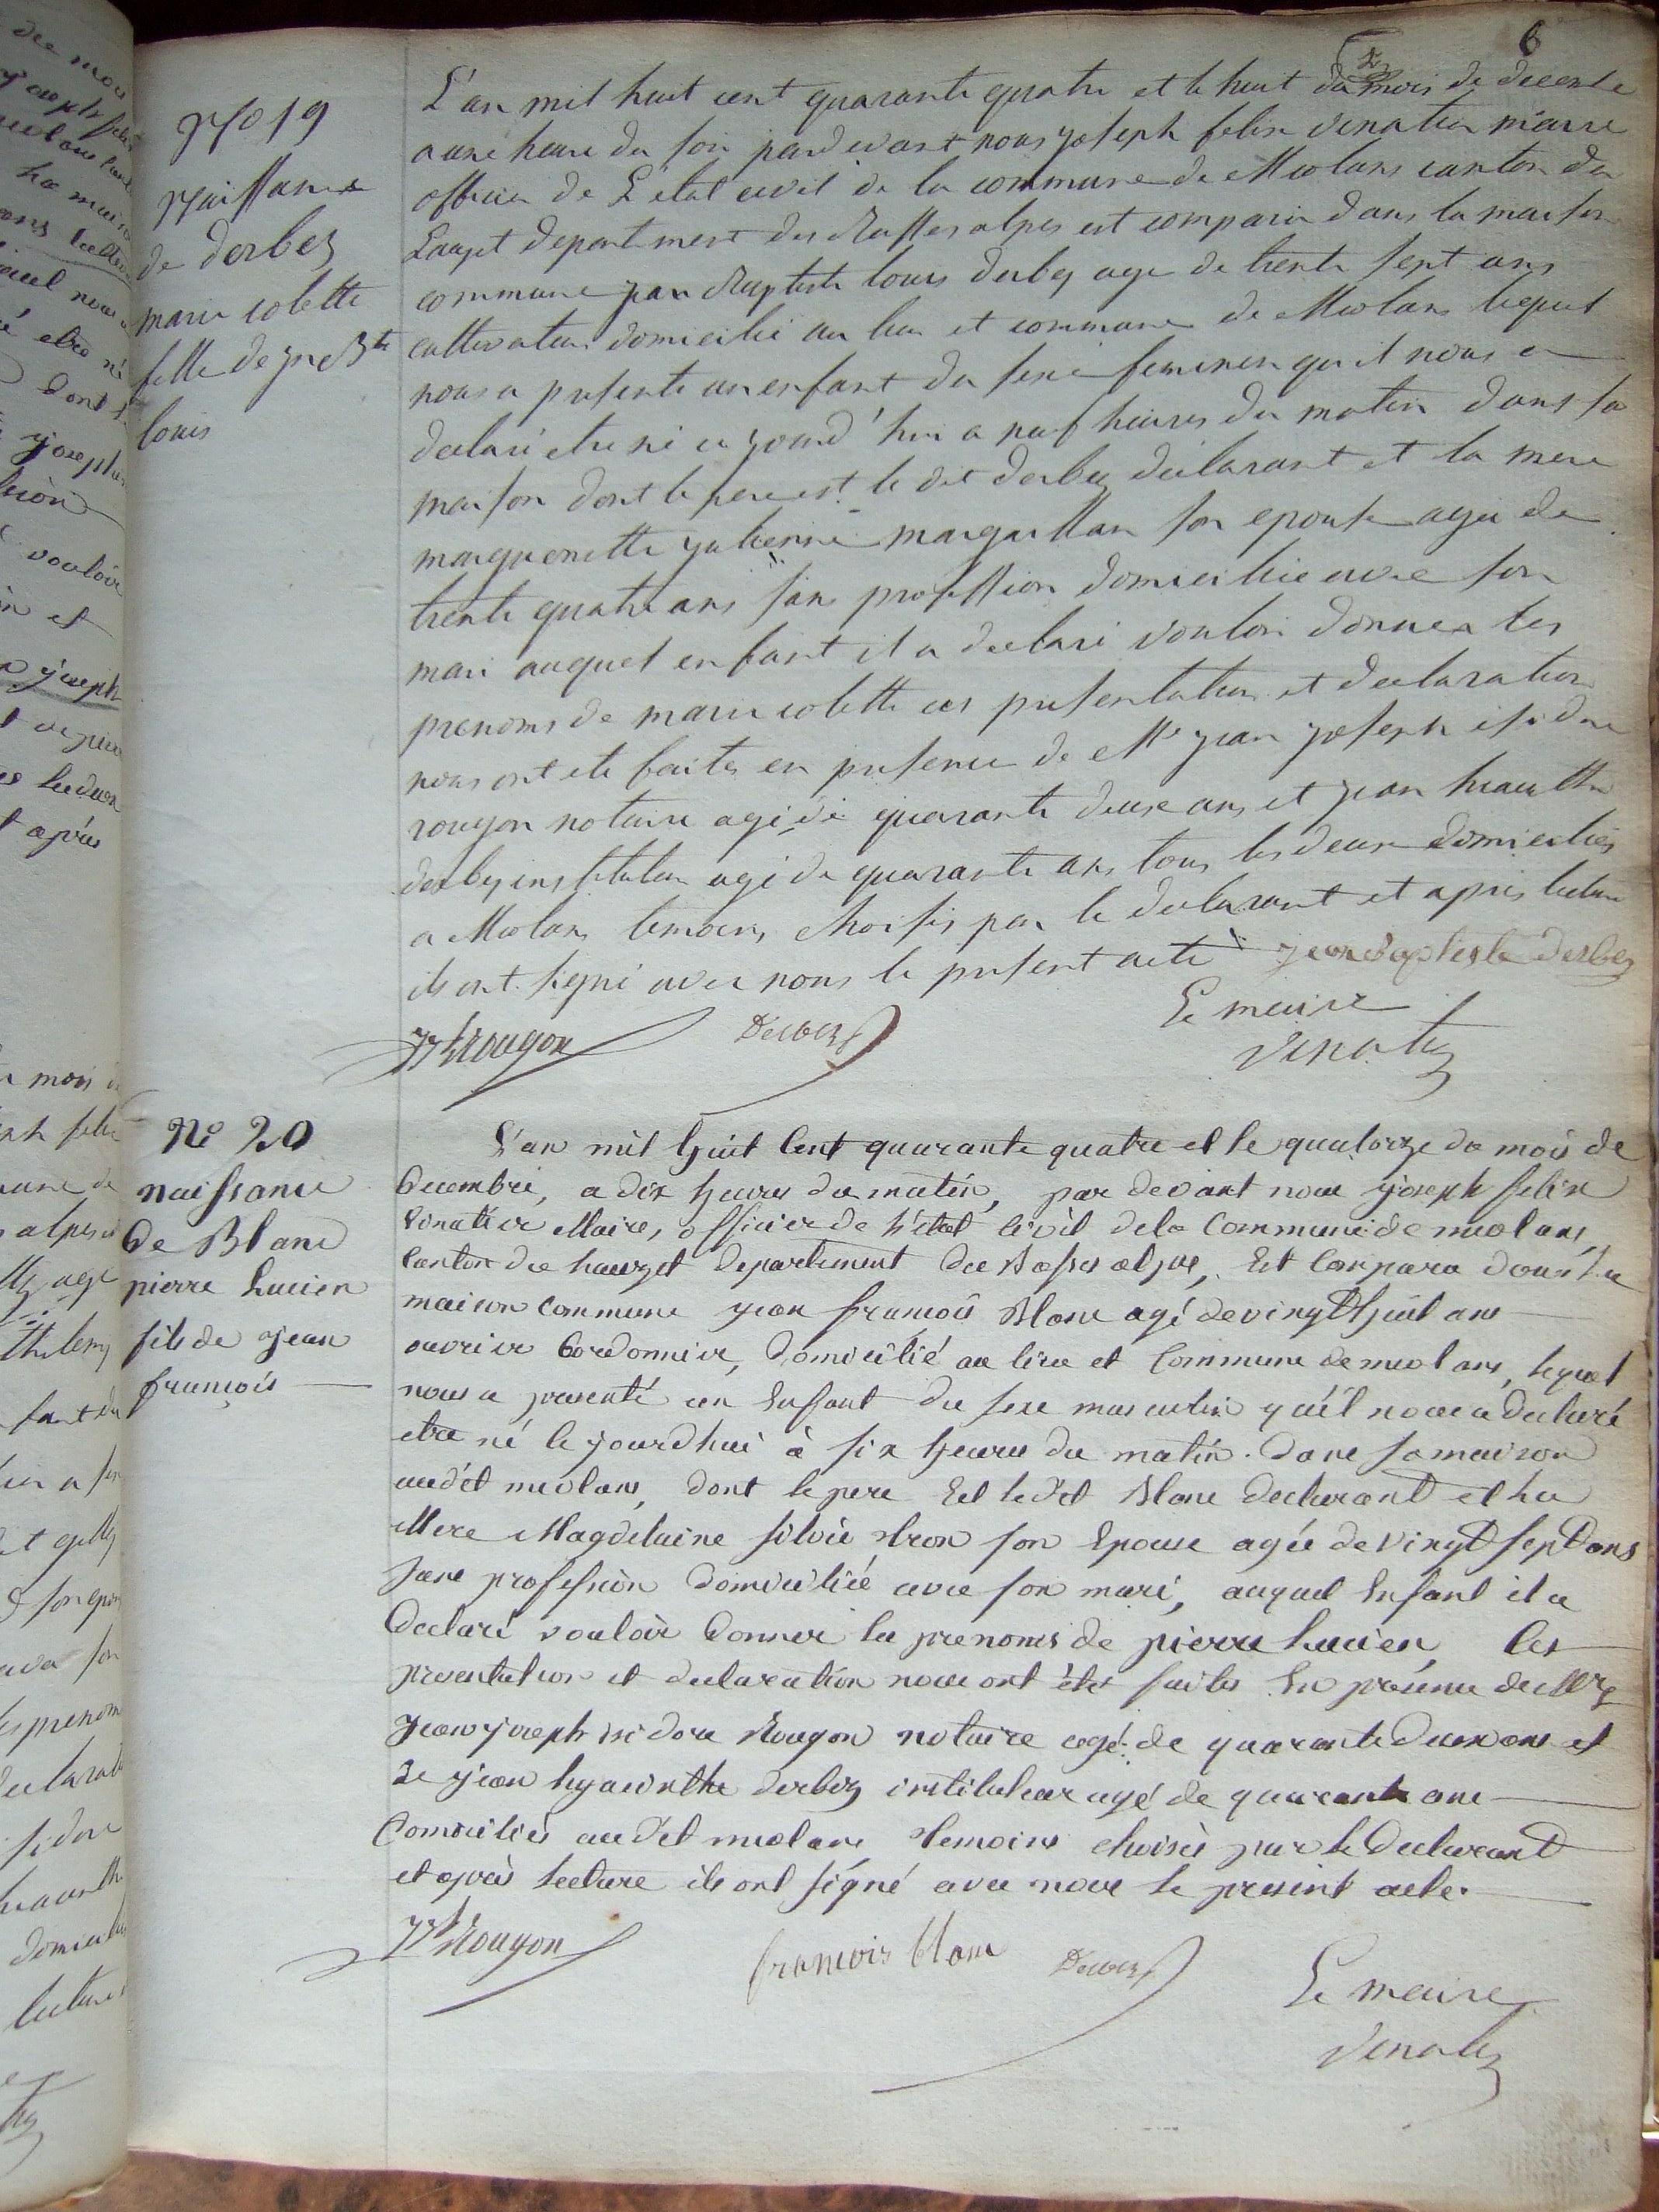 6
No 19
naissance
de derbez
marie colette
fille de jn Bte
louis
L'an mil huit cent quarante quatre et le huit du mois de decembre
a une heure du soir pardevant nous joseph felix venatier maire
officier de L'etat civil de la commune de Meolans canton du
Lauzet departement des Basses alpes est comparu dans la maison
commune jean Baptiste louis derbez age de trente sept ans
cultivateur domicilié au lieu et commune de Meolans lequel
nous a presenté un enfant du sexe feminin qu'il nous a
declaré etre né ce jourd'hui a neuf heures du matin dans sa
maison dont le pere est le dit derbez declarant et la mere
margueritte julienne margaillan son epouse agée de
trente quatre ans sans profession domiciliée avec son
mari auquel enfant il a declaré vouloir donner les
prenoms de marie colette ces presentation et declaration
nous ont eté faites en presence de Me jean joseph isidore
rougon notaire agé de quarante deux ans et jean hiacinthe
derbez instituteur agé de quarante ans tous les deux domiciliés
a Meolans temoins choisis par le declarant et après lecture
ils ont signé avec nous le present acte jean Baptiste Derbez
Le maire
Jh Rougon Derbez venatier
No 20
naissance
de Blanc
pierre Lucien
fils de jean
françois
L'an mil huit Cent quarante quatre et le quatorze du mois de
Decembre, a dix heures du matin, par devant nous joseph felix
Venatier Maire, officier de L'état Civil de la Commune de meolans,
Canton du Lauzet departement des Basses alpes, Est Comparu dans la
maison Commune jean françois Blanc agé de vingt huit ans
ouvrier Cordonnier, domicilié au lieu et Commune de meolans, lequel
nous a presenté un Enfant du sexe masculin qu'il nous a declaré
etre né le jourdhui à six heures du matin dans sa maison
audit meolans, dont le pere Est ledit Blanc declarant et La
Mere Magdelaine silvie tron son Epouse agée de vingt sept ans
sans profession domiciliée avec son mari, auquel Enfant il a
Declaré vouloir Donner les prenoms de pierre Lucien, Ces
presentation et declaration nous ont étés faites En présence de Me
jean joseph isidore Rougon notaire agé de quarante deux ans et
de jean hyacinthe derbez instituteur agé de quarante ans
Domiciliés audit meolans temoins choisis par le Declarant
et après Lecture ils ont signé avec nous le present acte.
Jh Rougon françois blanc Derbez Le maire
venatier